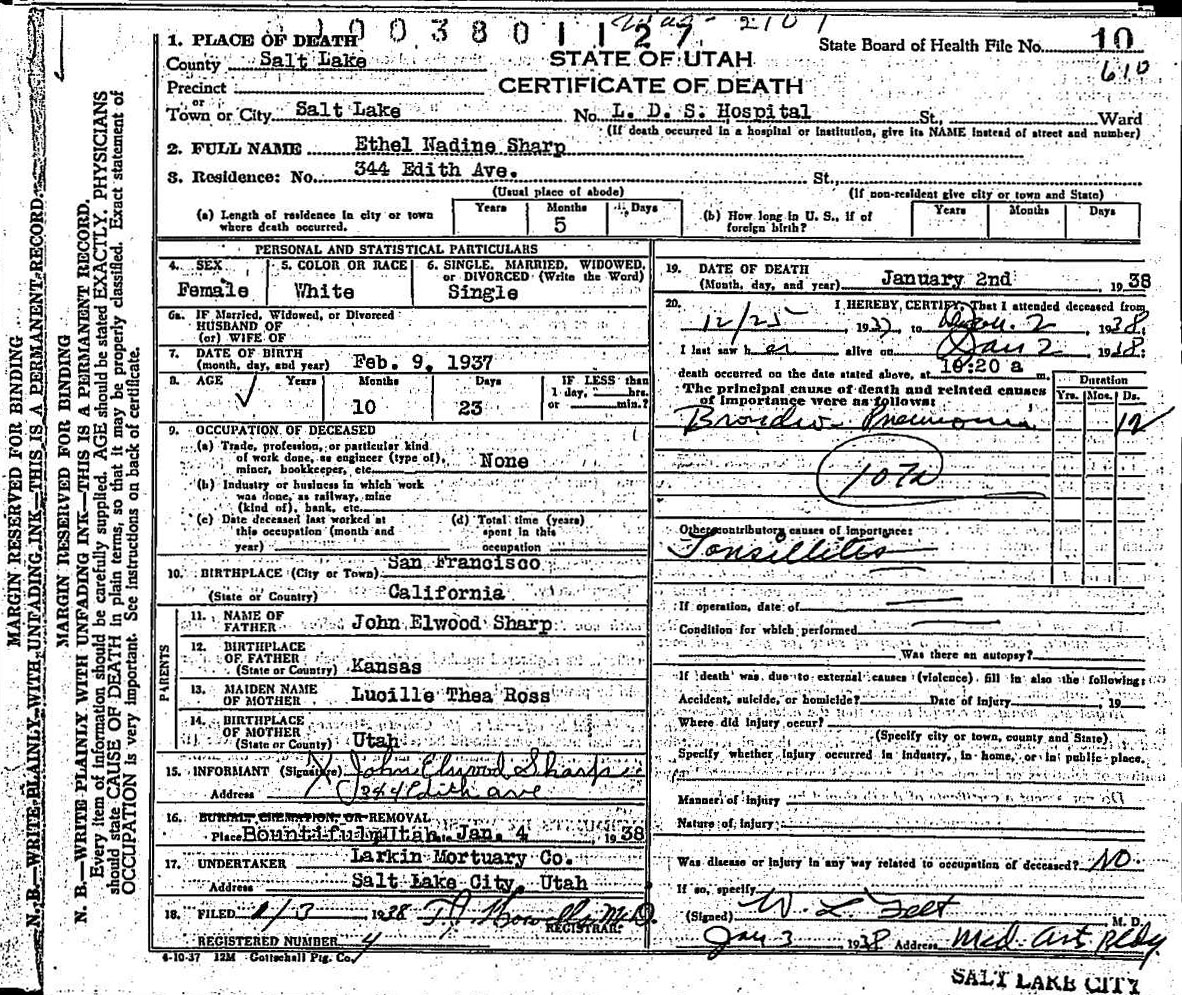 1003801127
State Board of Health File No. 10
610
1. PLACE OF DEATH
County Salt Lake
STATE OF UTAH
CERTIFICATE OF DEATH
Precinct
or
Town or City Salt Lake No. L. D. S. Hospital St., Ward
(If death occurred in a hospital or institution, give its NAME instead of street and number)
2. FULL NAME Ethel Nadine Sharp
3. Residence: No. 344 Edith Ave. St.,
(Usual place of abode) (If non-resident give city or town and State)
(a) Length of residence in city or town where death occurred. Years Months 5 Days
(b) How long in U. S., if of foreign birth? Years Months Days
PERSONAL AND STATISTICAL PARTICULARS
4. SEX Female
5. COLOR OR RACE White
6. SINGLE, MARRIED, WIDOWED, or DIVORCED (Write the Word) Single
6a. IF Married, Widowed, or Divorced
HUSBAND OF
(or) WIFE OF
7. DATE OF BIRTH
(month, day, and year) Feb. 9, 1937
8. AGE Years Months 10 Days 23 IF LESS than 1 day, hrs. or min.?
9. OCCUPATION OF DECEASED
(a) Trade, profession, or particular kind of work done, as engineer (type of), miner, bookkeeper, etc. None
(b) Industry or business in which work was done, as railway, mine (kind of), bank, etc.
(c) Date deceased last worked at this occupation (month and year)
(d) Total time (years) spent in this occupation
10. BIRTHPLACE (City or Town) San Francisco
(State or Country) California
PARENTS
11. NAME OF FATHER John Elwood Sharp
12. BIRTHPLACE OF FATHER
(State or Country) Kansas
13. MAIDEN NAME OF MOTHER Lucille Thea Ross
14. BIRTHPLACE OF MOTHER
(State or Country) Utah
15. INFORMANT (Signature) X John Elwood Sharp
Address 344 Edith Ave
16. BURIAL, CREMATION, OR REMOVAL
Place Bountiful, Utah Jan. 4 1938
17. UNDERTAKER Larkin Mortuary Co.
Address Salt Lake City, Utah
18. FILED 1/3 1938 M.D.
REGISTRAR.
REGISTERED NUMBER 4
4-10-37 12M Gottschall Ptg. Co.
19. DATE OF DEATH
(Month, day, and year) January 2nd, 1938
20. I HEREBY CERTIFY, That I attended deceased from
12/25, 1937, to 2, 1938,
I last saw her alive on Jan 2 1938;
death occurred on the date stated above, at 10:20 a m.
The principal cause of death and related causes of importance were as follows:
Duration
Yrs. Mos. Ds.
Broncho Pneumonia 12
107a
Other contributory causes of importance:
Tonsillitis
If operation, date of
Condition for which performed
Was there an autopsy?
If death was due to external causes (violence) fill in also the following:
Accident, suicide, or homicide? Date of injury, 19
Where did injury occur?
(Specify city or town, county and State)
Specify whether injury occurred in industry, in home, or in public place.
Manner of injury
Nature of injury
Was disease or injury in any way related to occupation of deceased? NO.
If so, specify
(Signed) W. L. Felt M. D.
Jan 3 1938 Address Med. Art Bldg.
SALT LAKE CITY
MARGIN RESERVED FOR BINDING
N. B.—WRITE PLAINLY WITH UNFADING INK—THIS IS A PERMANENT RECORD
MARGIN RESERVED FOR BINDING
N. B.—WRITE PLAINLY WITH UNFADING INK—THIS IS A PERMANENT RECORD.
Every item of information should be carefully supplied. AGE should be stated EXACTLY. PHYSICIANS
should state CAUSE OF DEATH in plain terms, so that it may be properly classified. Exact statement of
OCCUPATION is very important. See instructions on back of certificate.